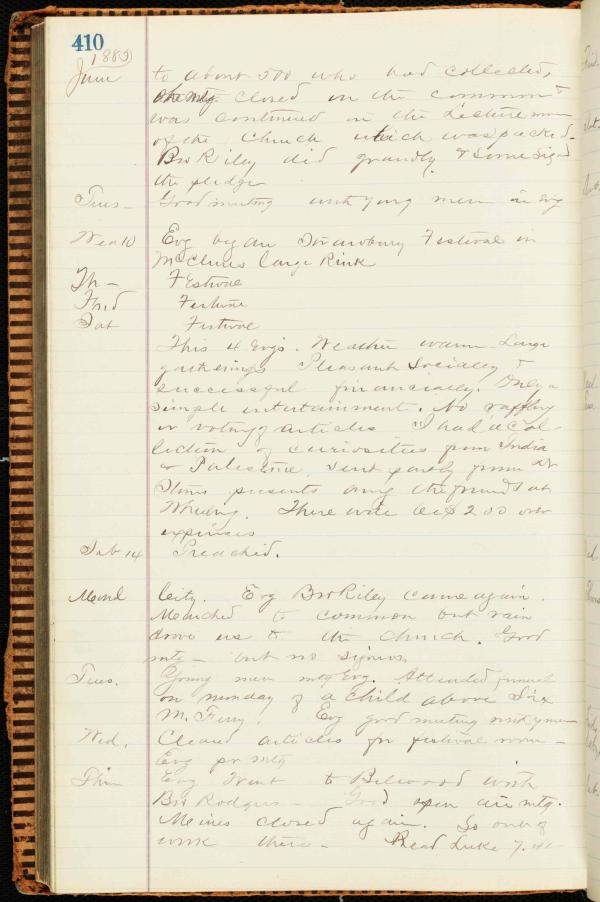 410
1885
June to about 500 who had collected,
the mtg closed on the common &
was continued in the Lecture room
of the Church which was packed.
Bro Riley did grandly & some signed
the pledge
Tues - Good meeting with young men in Evg
Wed 10 Evg began Strawberry Festival in
McClures large Rink
Th - Festival
Frid Festival
Sat Festival
This 4 Evgs. Weather warm Large
gatherings Pleasant Socially &
successful financially. Only a
simple entertainment. No raffling
or voting articles I had a Col-
lection of curiosities from India
& Palestine sent partly from
presents among the friends at
Wheeling. There were $200 over
expenses
Sab 14 Preached.
Mond City. Evg Bro Riley came again.
Marched to common but rain
drove us to the church. Good
mtg - but no signers.
Tues. Young men mtg Evg. Attended funeral
on Monday of a child above
M. Ferry. Evg good meeting with y men
Wed. Cleared articles for festival room -
Evg pr mtg
Thur Evg Went to Bellwood with
Bro Rodgers - Good open air mtg.
Meines closed again. So out of
work there - Read Luke 7.